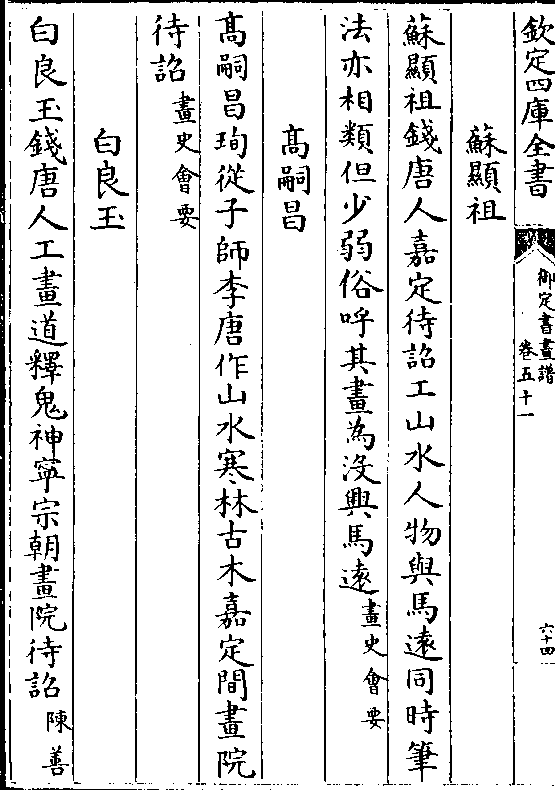 欽定四庫全書
御定書畫譜
卷五十一
六十四
蘇顯祖
蘇顯祖錢唐人嘉定待詔工山水人物與馬遠同時筆
法亦相類但少弱俗呼其畫為沒興馬遠畫史會要
髙嗣昌
髙嗣昌珣從子師李唐作山水寒林古木嘉定間畫院
待詔畫史會要
白良玉
白良玉錢唐人工畫道釋鬼神寧宗朝畫院待詔陳善